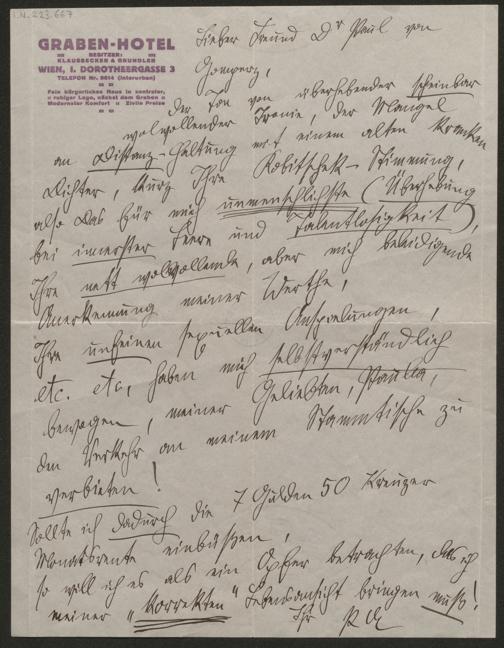 I.N. 223.667
GRABEN-HOTEL
BESITZER:
KLAUSBECKER & GRUNDLER
WIEN, I. DOROTHEERGASSE 3
TELEFON Nr. 9614 (interurban)
Fein bürgerliches Haus in zentraler,
ruhiger Lage, nächst dem Graben
Modernster Komfort Zivile Preise
Lieber Freund Dr Paul von
Gomperz,
der Ton von überhebender scheinbar
wolwollender Ironie, der Mangel
an Distanz-Haltung mit einem alten kranken
Dichter, kurz Ihre Kobitschek-Stimmung,
also das für mich unmenschlichste (Überhebung
bei innerster Leere und Talentlosigkeit),
Ihre nett wolwollende, aber mich beleidigende
Anerkennung meiner Werthe,
Ihre unfeinen sexuellen Anspielungen,
etc. etc, haben mich selbstverständlich
bewogen, meiner Geliebten, Paula,
den Verkehr an meinem Stammtische zu
verbieten!
Sollte ich dadurch die 7 Gulden 50 Kreuzer
Monatsrente einbüssen,
so will ich es als ein Opfer betrachten, das ich
meiner „korrekten“ Lebensansicht bringen muß!
Ihr PA